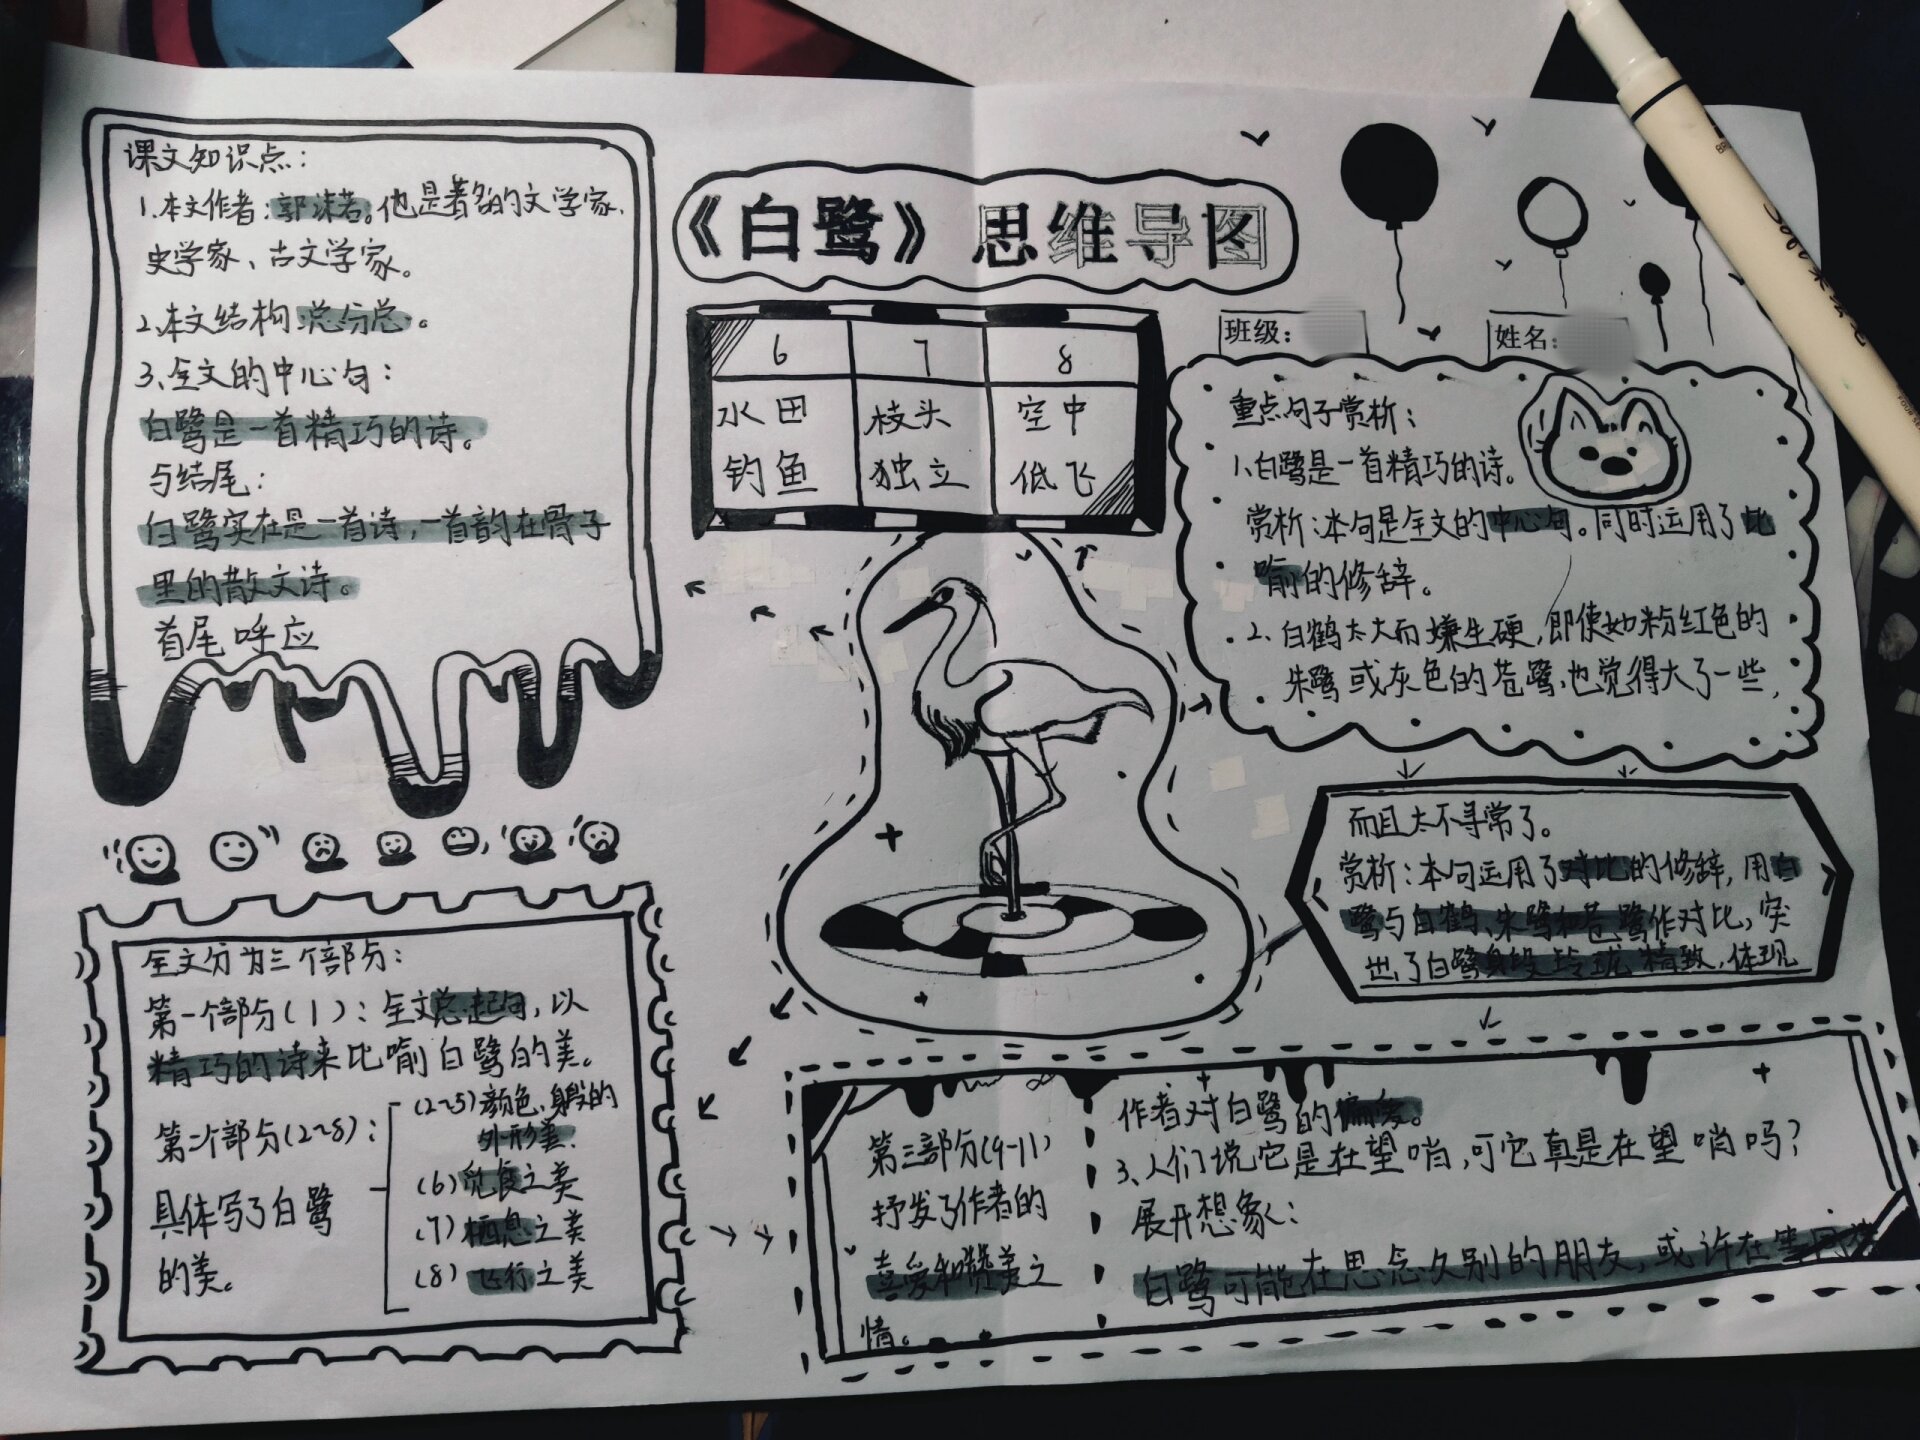 课文知识点：
1、本文作者：郭沫若。他是著名的文学家、
史学家、古文学家。
2、本文结构总分总。
3、全文的中心句：
白鹭是一首精巧的诗。
与结尾：
白鹭实在是一首诗，一首韵在骨子
里的散文诗。
首尾呼应
《白鹭》思维导图
6 7 8
水田 枝头 空中
钓鱼 独立 低飞
班级：
姓名：
重点句子赏析：
1、白鹭是一首精巧的诗。
赏析：本句是全文的中心句。同时运用了比
喻的修辞。
2、白鹤太大而嫌生硬，即使如粉红色的
朱鹭或灰色的苍鹭，也觉得大了一些，
而且太不寻常了。
赏析：本句运用了对比的修辞，用白
鹭与白鹤、朱鹭和苍鹭作对比，突
出了白鹭身段玲珑精致，体现
作者对白鹭的偏爱。
3、人们说它是在望哨，可它真是在望哨吗？
展开想象：
白鹭可能在思念久别的朋友，或许在
全文分为三个部分：
第一个部分（1）：全文总起句，以
精巧的诗来比喻白鹭的美。
第二个部分（2~8）：
具体写了白鹭
的美。
（2~5）颜色、身段的
外形美。
（6）觅食之美
（7）栖息之美
（8）飞行之美
第三部分（9-11）
抒发了作者的
喜爱和赞美之
情。